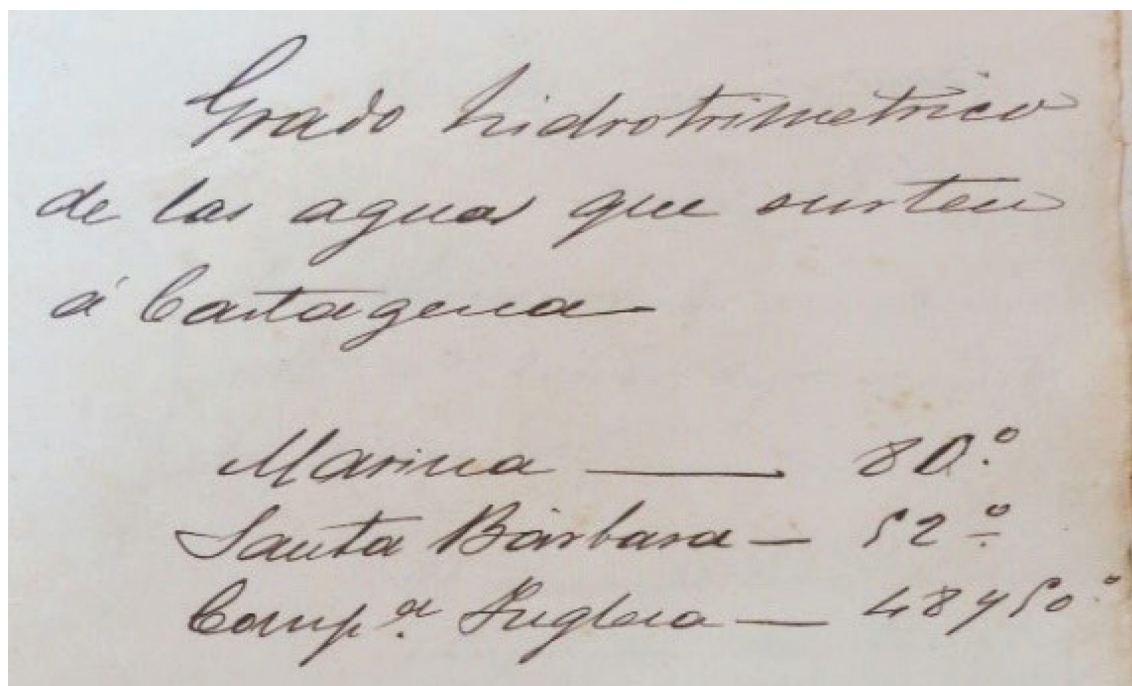 Grado hidrotrimetrico
de las aguas que surten
á Cartagena
Marina — 80.º
Santa Bárbara — 52.º
Comp.ª Inglesa — 48 y 50.º